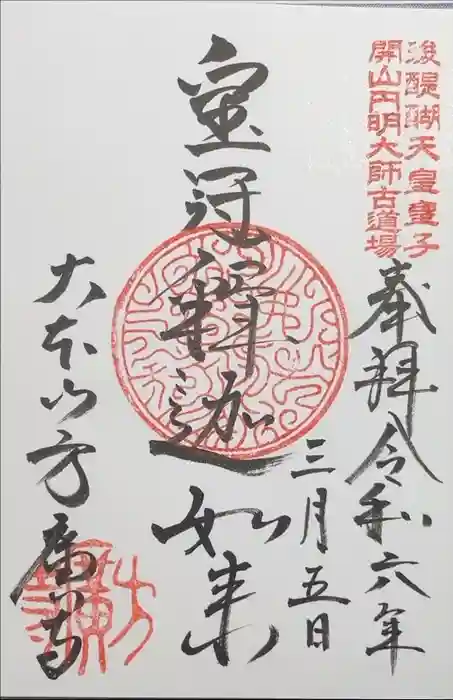 後醍醐天皇皇子
開山円明大師古道場
奉拝令和六年
三月五日
宝冠釋迦如来
大本山方廣寺